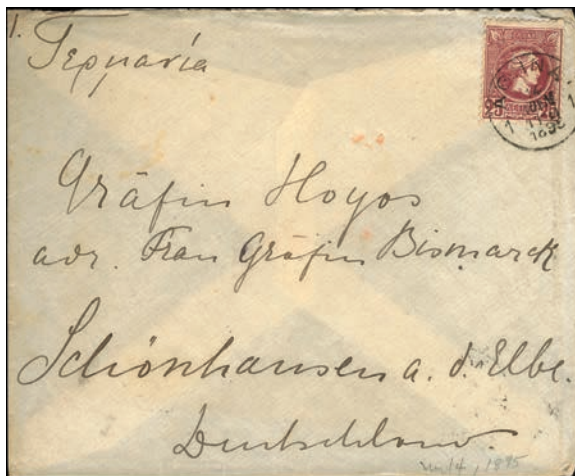 1.
Γερμανία
Gräfin Hoyos
adr. Frau Gräfin Bismarck
Schönhausen a. d. Elbe.
Deutschland.
25 25
1895